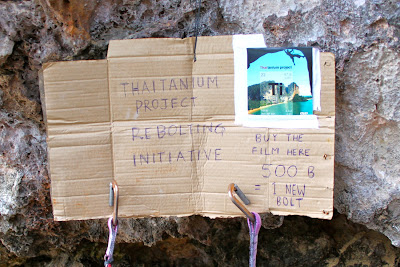 THAITANIUM
PROJECT
REBOLTING
INITIATIVE
thaitanium project
BUY THE
FILM HERE
500 B
= 1 NEW
BOLT